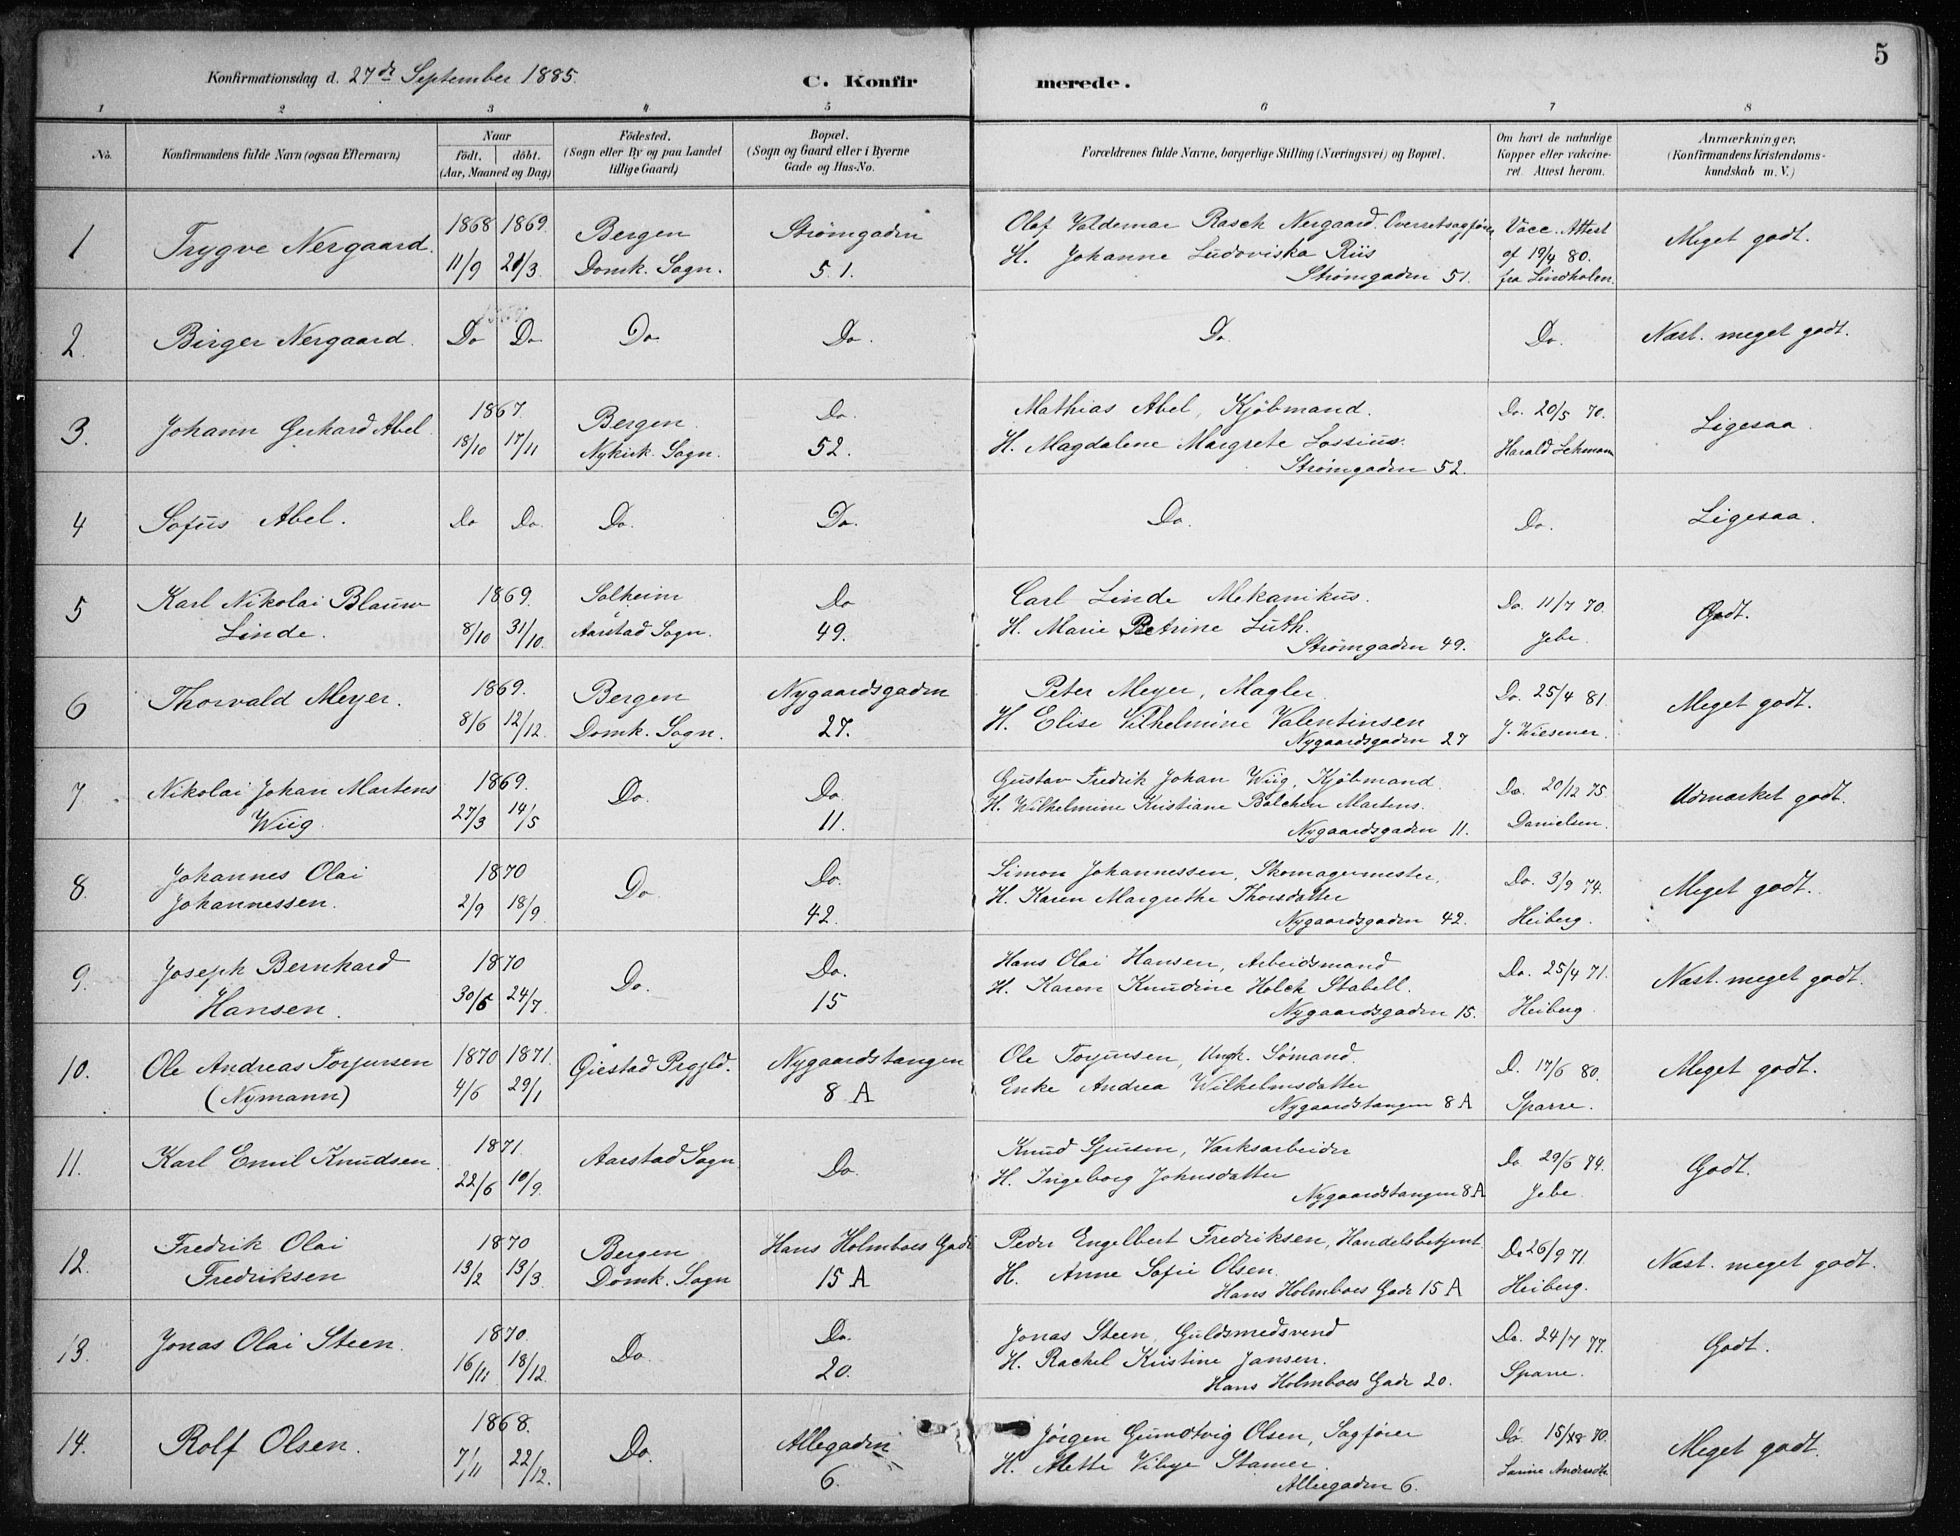 5
Konfirmationsdag d. 27de September 1885.
C. Konfirmerede.
1 2 3 4 5 6 7 8
No.
Konfirmandens fulde Navn (ogsaa Efternavn)
Naar
födt. döbt.
(Aar, Maaned og Dag)
Födested.
(Sogn eller By og paa Landet
tillige Gaard)
Bopæl.
(Sogn og Gaard eller i Byerne
Gade og Hus-No.
Forældrenes fulde Navne, borgerlige Stilling (Næringsvei) og Bopæl.
Om havt de naturlige
Kopper eller vakcine-
ret. Attest herom.
Anmærkninger,
(Konfirmandens Kristendoms-
kundskab m. V.)
1 Trygve Nergaard. 1868 11/9 1869. 21/3.
Bergen
Domk. Sogn.
Strømgaden
51.
Olaf Valdemar Rasch Nergaard. Overretsagfører
H. Johanne Ludoviska Riis
Strømgaden 51.
Vacc. Attest
af 19/4 80.
fra Lindholm.
Meget godt.
2. Birger Nergaard. Do Do Do Do. Do. Do. Næst. meget godt.
3. Johann Gerhard Abel 1867. 18/10 17/11
Bergen.
Nykirk. Sogn.
Do.
52.
Mathias Abel, Kjøbmand.
H. Magdalene Margrete Lossius.
Strømgaden 52.
Do. 20/5 70.
Harald Lehmann
Ligesaa
4 Sofus Abel. Do Do. Do. Do. Do. Do. Ligesaa.
5 Karl Nikolai Blauw
Linde.
1869. 8/10 31/10.
Solheim
Aarstad Sogn.
Do
49.
Carl Linde Mekanikus.
H. Marie Petrine Luth.
Strømgaden 49.
Do. 11/7 70.
Jebe
Godt.
6 Thorvald Meyer. 1869. 8/6 12/12.
Bergen
Domk. Sogn.
Nygaardsgaden
27.
Peter Meyer, Mægler
H. Elise Vilhelmine Valentinsen
Nygaardsgaden 27
Do. 25/4 81.
J. Wiesener.
Meget godt.
7 Nikolai Johan Martens
Wiig.
1869. 27/3 14/5
Do.
Do.
11.
Gustav Fredrik Johan Wiig, Kjøbmand.
H. Wilhelmine Kristiane Balchen Martens.
Nygaardsgaden 11.
Do. 20/12 75.
Danielsen.
Udmærket godt.
8. Johannes Olai
Johannessen.
1870 2/9 18/9.
Do
Do.
42.
Simon Johannessen, Skomagermester.
H. Karen Margrethe Thorsdatter
Nygaardsgaden 42.
Do. 3/9 74.
Heiberg.
Meget godt.
9. Joseph Bernhard
Hansen.
1870 30/5 24/7.
Do.
Do.
15
Hans Olai Hansen, Arbeidsmand
H. Karen Knudine Holck Stabell.
Nygaardsgaden 15.
Do. 25/4 71.
Heiberg.
Næst. meget godt.
10. Ole Andreas Torjursen
(Nymann)
1870 4/6 1871. 29/1
Øiestad Prgjld.
Nygaardstangen
8 A
Ole Torjursen, Ungk. Sømand.
Enke Andrea Wilhelmsdatter
Nygaardstangen 8 A
D. 17/6 80.
Sparre.
Meget godt.
11. Karl Emil Knudsen. 1871. 22/6 10/9.
Aarstad Sogn
Do.
Knud Sjursen, Værksarbeider
H. Ingeborg Johnsdatter
Nygaardstangen 8 A
Do 29/6 74.
Jebe.
Godt.
12. Fredrik Olai
Fredriksen
1870 13/2 13/3.
Bergen
Domk. Sogn
Hans Holmboes Gade
15 A
Peder Engelbert Fredriksen, Handelsbetjent
H. Anne Sofie Olsen.
Hans Holmboes Gade 15 A
Do 26/9 71.
Heiberg.
Næst. meget godt.
13. Jonas Olai Steen. 1870. 16/11 18/12.
Do.
Do.
20.
Jonas Steen, Guldsmedsvend
H. Rachel Kristine Jansen.
Hans Holmboes Gade 20.
Do. 24/7 77.
Sparre.
Godt.
14. Rolf Olsen. 1868. 7/11 22/12.
Do.
Allegaden
6.
Jørgen Grundtvig Olsen, Sagfører
H. Mette Vibye Stamer.
Alleegaden 6.
Do. 15/ 70.
Meget godt.